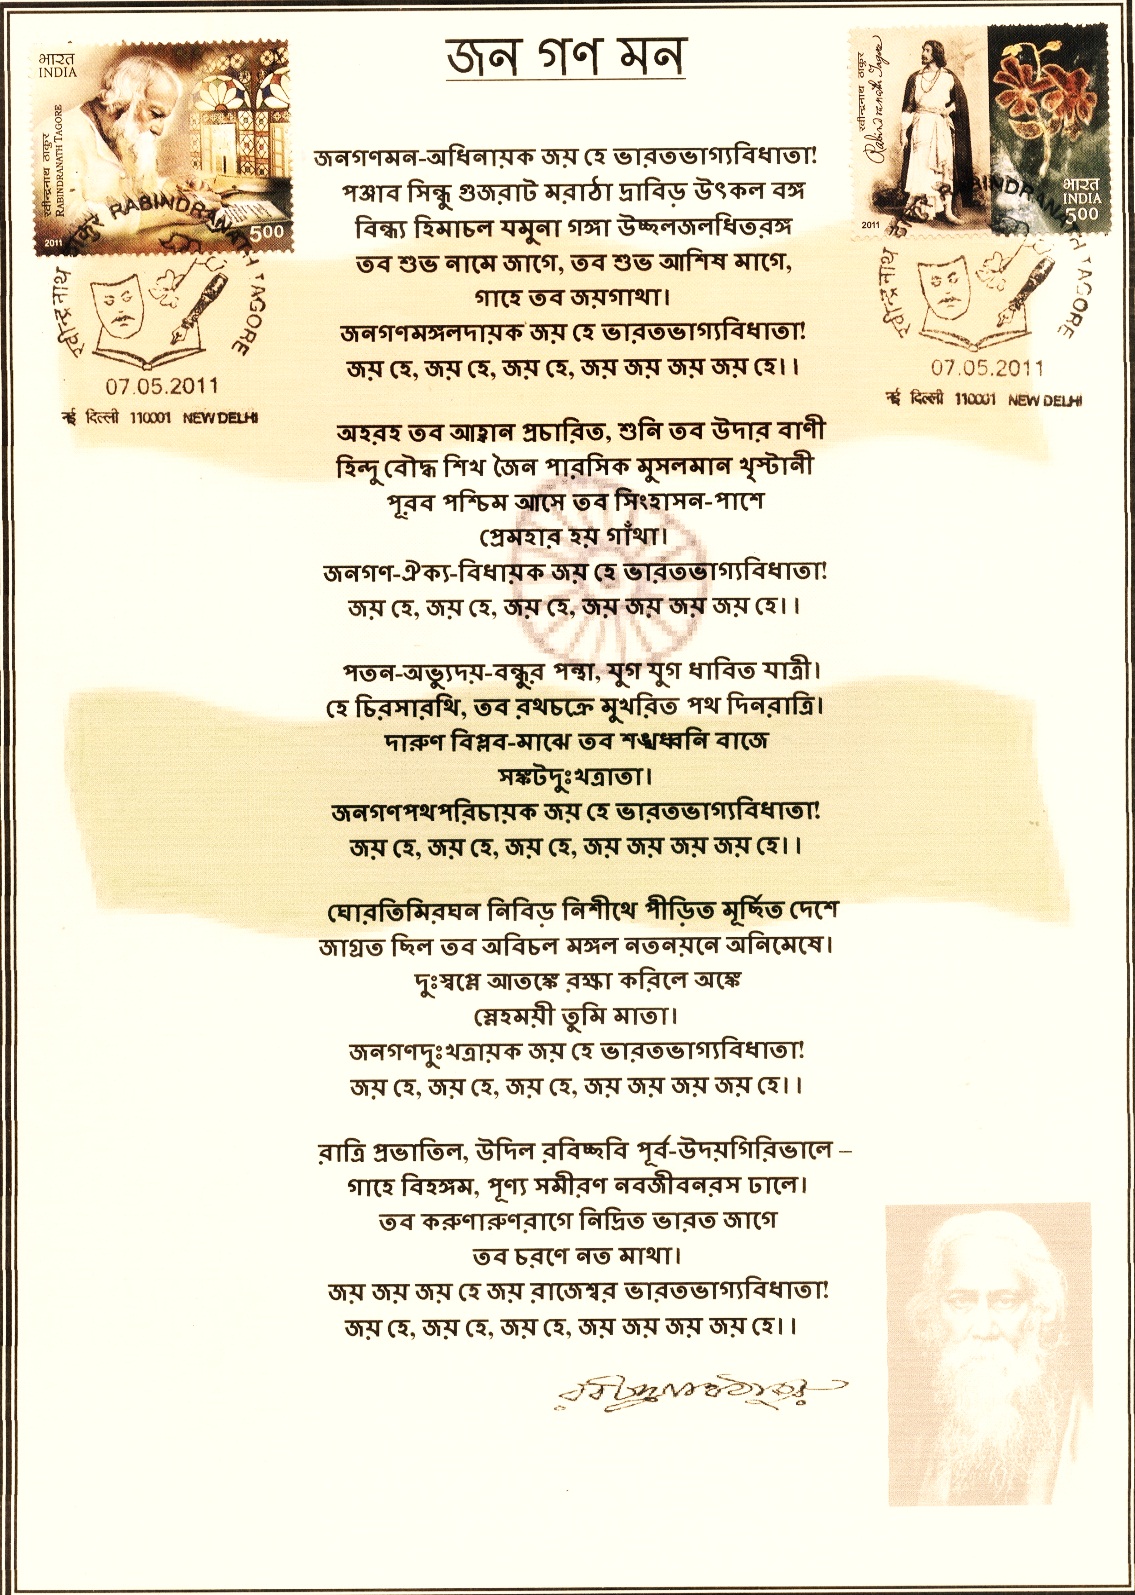 জন গণ মন
भारत
INDIA
रवीन्द्रनाथ ठाकुर
RABINDRANATH TAGORE
2011
500
रवीन्द्रनाथ ठाकुर RABINDRANATH TAGORE
07.05.2011
नई दिल्ली 110001 NEW DELHI
रवीन्द्रनाथ ठाकुर
Rabindranath Tagore
भारत
INDIA
500
2011
रवीन्द्रनाथ ठाकुर RABINDRANATH TAGORE
07.05.2011
नई दिल्ली 110001 NEW DELHI
জনগণমন-অধিনায়ক জয় হে ভারতভাগ্যবিধাতা!
পঞ্জাব সিন্ধু গুজরাট মরাঠা দ্রাবিড় উৎকল বঙ্গ
বিন্ধ্য হিমাচল যমুনা গঙ্গা উচ্ছলজলধিতরঙ্গ
তব শুভ নামে জাগে, তব শুভ আশিষ মাগে,
গাহে তব জয়গাথা।
জনগণমঙ্গলদায়ক জয় হে ভারতভাগ্যবিধাতা!
জয় হে, জয় হে, জয় হে, জয় জয় জয় জয় হে।।
অহরহ তব আহ্বান প্রচারিত, শুনি তব উদার বাণী
হিন্দু বৌদ্ধ শিখ জৈন পারসিক মুসলমান খৃস্টানী
পূরব পশ্চিম আসে তব সিংহাসন-পাশে
প্রেমহার হয় গাঁথা।
জনগণ-ঐক্য-বিধায়ক জয় হে ভারতভাগ্যবিধাতা!
জয় হে, জয় হে, জয় হে, জয় জয় জয় জয় হে।।
পতন-অভ্যুদয়-বন্ধুর পন্থা, যুগ যুগ ধাবিত যাত্রী।
হে চিরসারথি, তব রথচক্রে মুখরিত পথ দিনরাত্রি।
দারুণ বিপ্লব-মাঝে তব শঙ্খধ্বনি বাজে
সঙ্কটদুঃখত্রাতা।
জনগণপথপরিচায়ক জয় হে ভারতভাগ্যবিধাতা!
জয় হে, জয় হে, জয় হে, জয় জয় জয় জয় হে।।
ঘোরতিমিরঘন নিবিড় নিশীথে পীড়িত মূর্ছিত দেশে
জাগ্রত ছিল তব অবিচল মঙ্গল নতনয়নে অনিমেষে।
দুঃস্বপ্নে আতঙ্কে রক্ষা করিলে অঙ্কে
স্নেহময়ী তুমি মাতা।
জনগণদুঃখত্রায়ক জয় হে ভারতভাগ্যবিধাতা!
জয় হে, জয় হে, জয় হে, জয় জয় জয় জয় হে।।
রাত্রি প্রভাতিল, উদিল রবিচ্ছবি পূর্ব-উদয়গিরিভালে –
গাহে বিহঙ্গম, পূণ্য সমীরণ নবজীবনরস ঢালে।
তব করুণারুণরাগে নিদ্রিত ভারত জাগে
তব চরণে নত মাথা।
জয় জয় জয় হে জয় রাজেশ্বর ভারতভাগ্যবিধাতা!
জয় হে, জয় হে, জয় হে, জয় জয় জয় জয় হে।।
রবীন্দ্রনাথ ঠাকুর